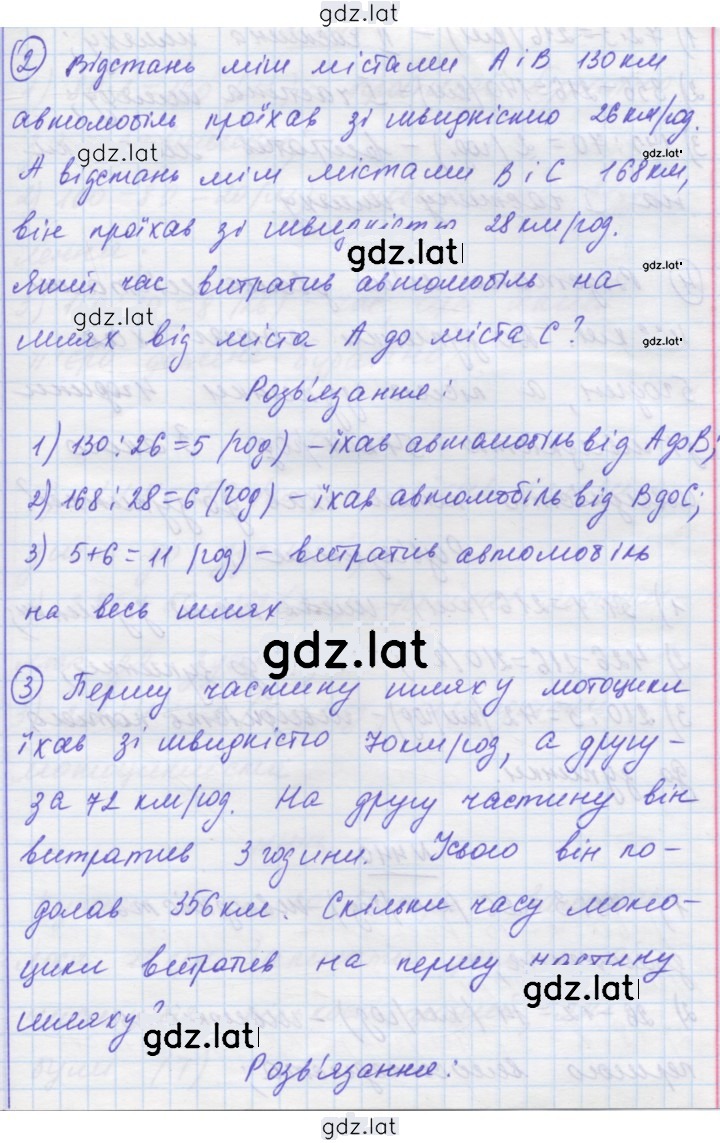 gdz.lat
2 Відстань між містами А і В 130 км
автомобіль проїхав зі швидкістю 26 км/год.
gdz.lat
gdz.lat
А відстань між містами В і С 168 км,
він проїхав зі швидкістю 28 км/год.
gdz.lat
gdz.lat
Який час витратив автомобіль на
gdz.lat
шлях від міста А до міста С?
gdz.lat
Розв'язання:
1) 130 : 26 = 5 (год) – їхав автомобіль від А до В;
2) 168 : 28 = 6 (год) – їхав автомобіль від В до С;
3) 5 + 6 = 11 (год) – витратив автомобіль
на весь шлях
gdz.lat
3 Першу частину шляху мотоцикл
їхав зі швидкістю 70 км/год, а другу -
за 72 км/год. На другу частину він
витратив 3 години. Усього він по-
долав 356 км. Скільки часу мото-
цикл витратив на першу частину
gdz.lat
шляху?
gdz.lat
Розв'язання:
gdz.lat